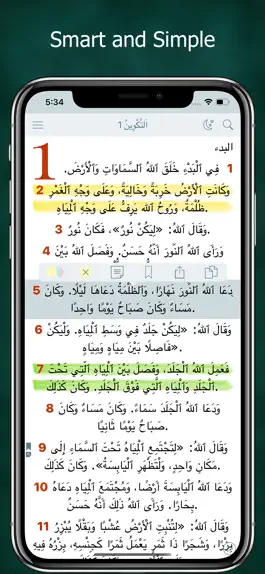 Smart and Simple
5:34
اَلتَّكْوِينُ 1
البدء
1
1 فِي الْبَدْءِ خَلَقَ اللهُ السَّمَاوَاتِ وَالْأَرْضَ.
2 وَكَانَتِ الْأَرْضُ خَرِبَةً وَخَالِيَةً، وَعَلَى وَجْهِ الْغَمْرِ
ظُلْمَةٌ، وَرُوحُ اللهِ يَرِفُّ عَلَى وَجْهِ الْمِيَاهِ.
3 وَقَالَ اللهُ: «لِيَكُنْ نُورٌ»، فَكَانَ نُورٌ
4 وَرَأَى اللهُ النُّورَ أَنَّهُ حَسَنٌ. وَفَصَلَ اللهُ بَيْنَ
5 دَعَا اللهُ النُّورَ نَهَارًا، وَالظُّلْمَةُ دَعَاهَا لَيْلًا. وَكَانَ
مَسَاءٌ وَكَانَ صَبَاحٌ يَوْمًا وَاحِدًا.
6 وَقَالَ اللهُ: «لِيَكُنْ جَلَدٌ فِي وَسَطِ الْمِيَاهِ. وَلْيَكُنْ
فَاصِلًا بَيْنَ مِيَاهٍ وَمِيَاهٍ».
7 فَعَمِلَ اللهُ الْجَلَدَ، وَفَصَلَ بَيْنَ الْمِيَاهِ الَّتِي تَحْتَ
الْجَلَدِ وَالْمِيَاهِ الَّتِي فَوْقَ الْجَلَدِ. وَكَانَ كَذلِكَ.
8 وَدَعَا اللهُ الْجَلَدَ سَمَاءً. وَكَانَ مَسَاءٌ وَكَانَ
صَبَاحٌ يَوْمًا ثَانِيًا
9 وَقَالَ اللهُ: «لِتَجْتَمِعِ الْمِيَاهُ تَحْتَ السَّمَاءِ إِلَى
مَكَانٍ وَاحِدٍ، وَلْتَظْهَرِ الْيَابِسَةُ». وَكَانَ كَذلِكَ.
10 وَدَعَا اللهُ الْيَابِسَةَ أَرْضًا، وَمُجْتَمَعَ الْمِيَاهِ دَعَاهُ
بِحَارًا. وَرَأَى اللهُ ذلِكَ أَنَّهُ حَسَنٌ.
11 وَقَالَ اللهُ: «لِتُنْبِتِ الْأَرْضُ عُشْبًا وَبَقْلًا يُبْزِرُ
بِزْرًا، وَشَجَرًا ذَا ثَمَرٍ يَعْمَلُ ثَمَرًا كَجِنْسِهِ، بِزْرُهُ فِيهِ